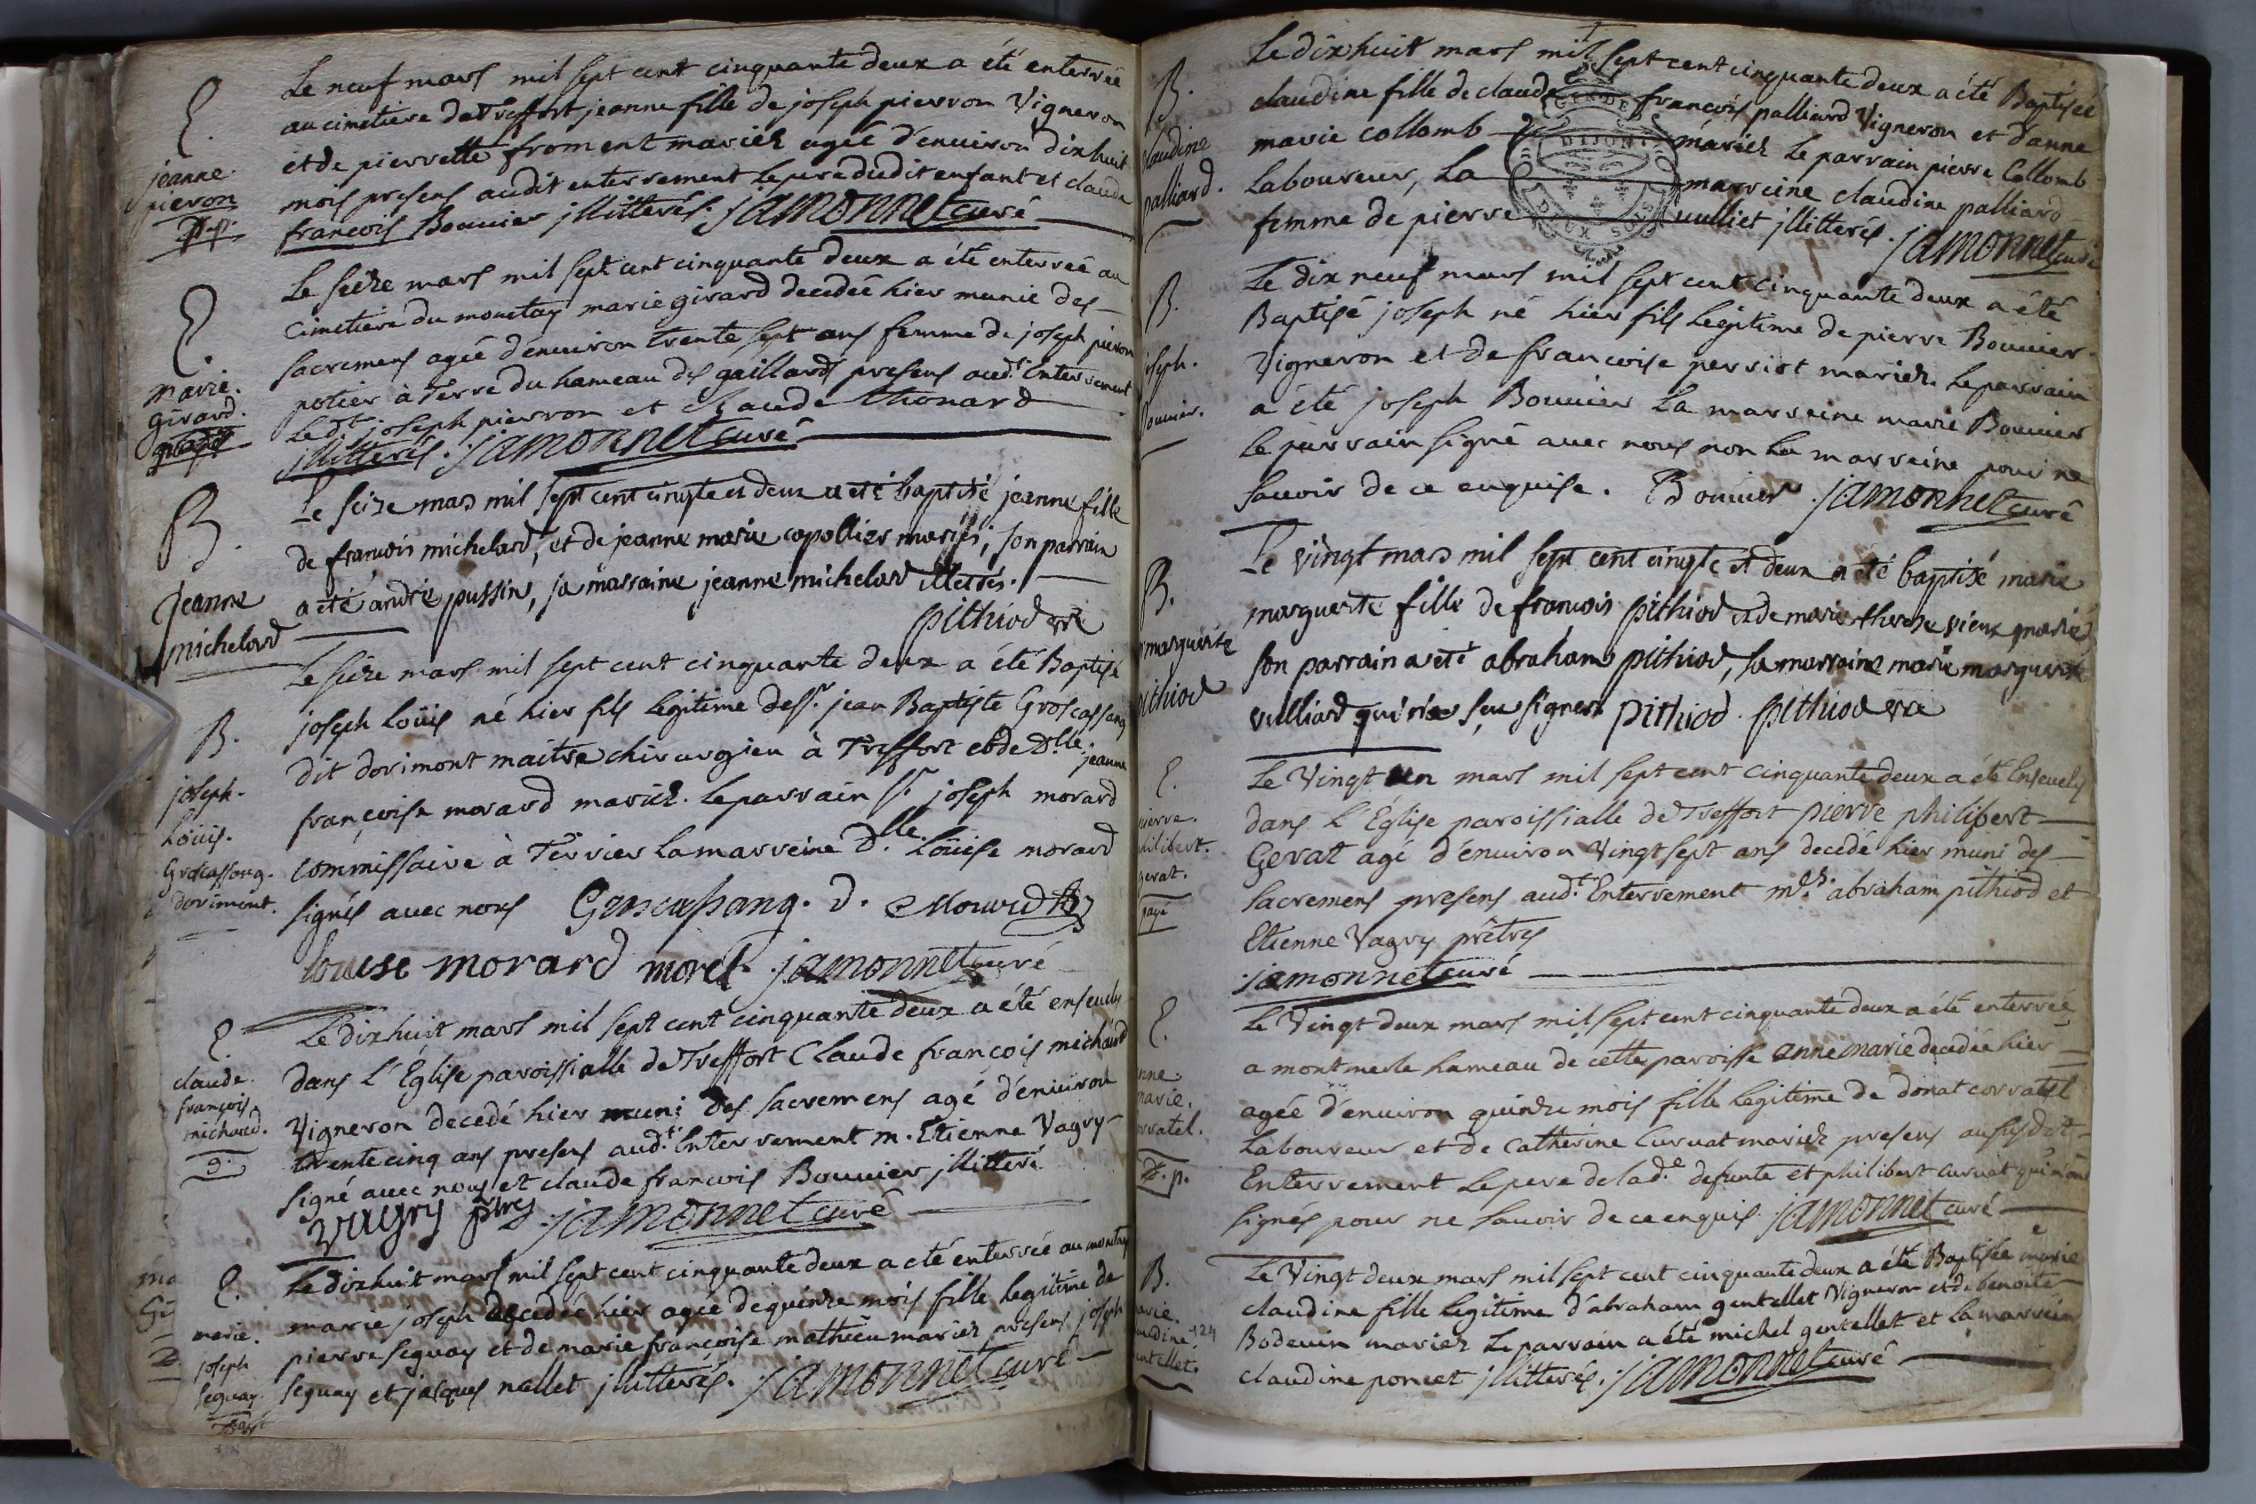 E.
jeanne
pieron
Le neuf mars mil sept cent cinquante deux a été enterrée
au cimetiere de Treffort jeanne fille de joseph pierron Vigneron
et de pierrette froment mariez agée d'environ dixhuit
mois presens audit enterrement le pere dudit enfant et claude
françois Bouvier jllitterés. jamonnet curé
E.
marie.
girard.
Le seize mars mil sept cent cinquante deux a été enterreé au
cimetiere du montay marie girard decedée hier munie des
sacremens agée d'environ trente sept ans femme de joseph pieron
potier à Terre du hameau des gaillards presens aud.t Enterrement
le dt joseph pierron et claude thonard
jllitterés. jamonnet curé
B.
jeanne
michelard
Le seize mars mil sept cent cinqte et deux a eté baptisé jeanne fille
de francois michelard, et de jeanne marie copollier mariés, son parrain
a eté andré pussin, sa marraine jeanne michelard illetrés.
pithiod vre
B.
joseph.
Loüis.
Groscassang.
dorimont.
Le seize mars mil sept cent cinquante deux a été Baptisé
joseph Loüis né hier fils legitime de s.r jean Baptiste Groscassang
dit dorimont maitre chirurgien à Treffort et de D.lle jeanne
françoise morard mariez. Le parrain s.r joseph morard
commissaire à Terrier la marreine D.lle Loüise morard
signés avec nous Groscassang. D. Morard
louise morard morel. jamonnet curé
E.
claude.
françois
michard.
Le dixhuit mars mil sept cent cinquante deux a été ensevely
dans l'Église paroissialle de Treffort Claude françois michard
Vigneron decedé hier muni des sacremens agé d'environ
trente cinq ans presens aud.t Enterrement m. Etienne Vagry
signé avec nous et claude francois Bouvier jllitteré
vagry ptre jamonnet curé
E.
marie.
joseph
seguay
Le dixhuit mars mil sept cent cinquante deux a été enterrée au montay
marie joseph decedée hier agée de quinze mois fille legitime de
pierre seguay et de marie françoise mathieu mariez presens joseph
seguay et jacques nallet jllitterés. jamonnet curé
B.
claudine
palliard.
Le dixhuit mars mil sept cent cinquante deux a été Baptisée
claudine fille de claude françois palliard Vigneron et d'anne
marie collomb mariez le parrain pierre Collomb
Laboureur, La marreine claudine palliard
femme de pierre vulliet jllitterés. jamonnet curé
DIJON
DEUX SOLS
B.
joseph.
Bouvier.
Le dix neuf mars mil sept cent cinquante deux a été
Baptisé joseph né hier fils legitime de pierre Bouvier
Vigneron et de francoise perriot mariez. le parrain
a été joseph Bouvier la marreine marie Bouvier
le parrain signé avec nous non la marreine pour ne
savoir de ce enquise. Bouvier jamonnet curé
B.
marguerite
pithiod
Le vingt mars mil sept cent cinqte et deux a été baptisé marie
marguerte fille de francois pithiod et de marie therese vieux mariés
son parrain a eté abraham pithiod, sa marraine marie marguerite
vulliard qui n'a seu signer pithiod. pithiod vre
E.
pierre.
philibert.
gerat.
payé
Le Vingt un mars mil sept cent cinquante deux a été Ensevely
dans l'Église paroissialle de Treffort pierre philibert
Gerat agé d'environ Vingt sept ans decedé hier muni des
sacremens presens aud.t Enterrement m.rs abraham pithiod et
Etienne Vagry prêtres
jamonnet curé
E.
anne.
marie.
corratel.
Le Vingt deux mars mil sept cent cinquante deux a été enterrée
a montmerle hameau de cette paroisse anne marie decedée hier
agée d'environ quinze mois fille legitime de donat corratel
Laboureur et de catherine Curvat mariez presens au susdit
Enterrement le pere de la d.e defunte et philibert curvat qui n'ont
signés pour ne savoir de ce enquis. jamonnet curé
B.
marie.
claudine 124
gentellet.
Le Vingt deux mars mil sept cent cinquante deux a été Baptisée marie
claudine fille legitime d'abraham gentellet Vigneron et de benoite
Bodevin mariez le parrain a été michel gentellet et la marreine
claudine poncet jllitterés. jamonnet curé